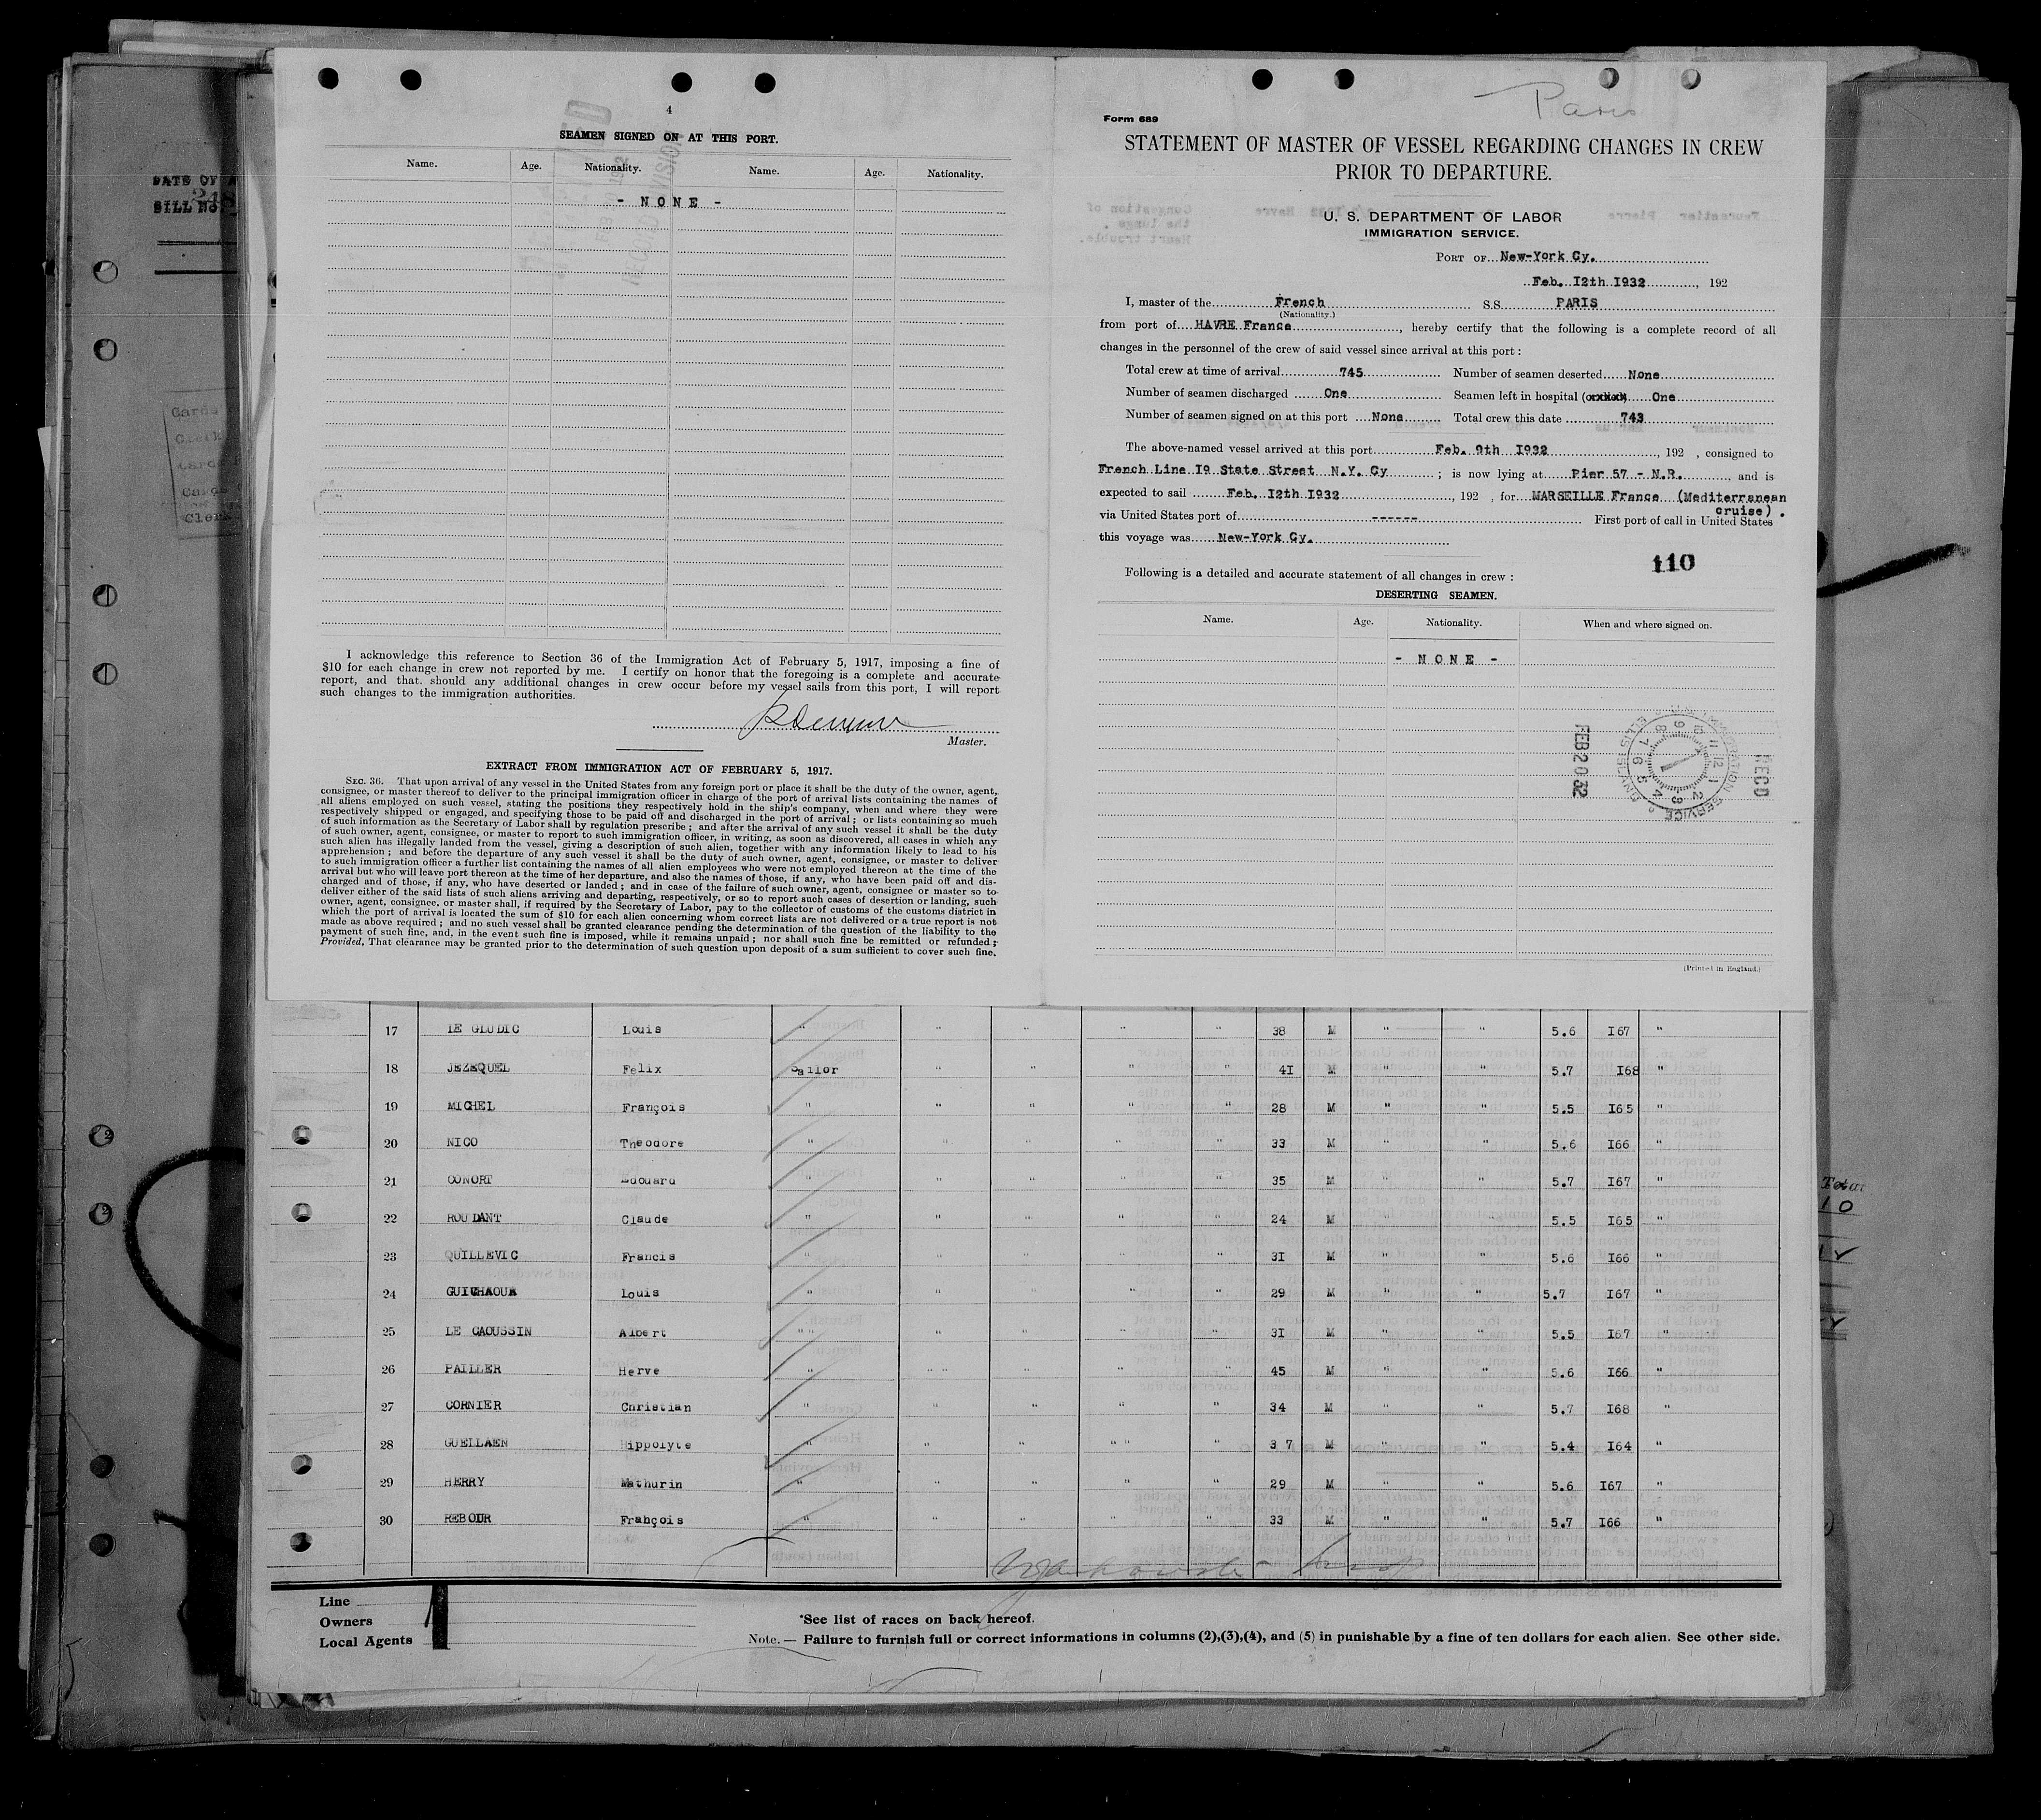 4
SEAMEN SIGNED ON AT THIS PORT.
Name. Age. Nationality. Name. Age. Nationality.
- NONE -
I acknowledge this reference to Section 36 of the Immigration Act of February 5, 1917, imposing a fine of
$10 for each change in crew not reported by me. I certify on honor that the foregoing is a complete and accurate
report, and that should any additional changes in crew occur before my vessel sails from this port, I will report
such changes to the immigration authorities.
Master.
EXTRACT FROM IMMIGRATION ACT OF FEBRUARY 5, 1917.
SEC. 36. That upon arrival of any vessel in the United States from any foreign port or place it shall be the duty of the owner, agent,
consignee, or master thereof to deliver to the principal immigration officer in charge of the port of arrival lists containing the names of
all aliens employed on such vessel, stating the positions they respectively hold in the ship's company, when and where they were
respectively shipped or engaged, and specifying those to be paid off and discharged in the port of arrival; or lists containing so much
of such information as the Secretary of Labor shall by regulation prescribe; and after the arrival of any such vessel it shall be the duty
of such owner, agent, consignee, or master to report to such immigration officer, in writing, as soon as discovered, all cases in which any
such alien has illegally landed from the vessel, giving a description of such alien, together with any information likely to lead to his
apprehension; and before the departure of any such vessel it shall be the duty of such owner, agent, consignee, or master to deliver
to such immigration officer a further list containing the names of all alien employees who were not employed thereon at the time of the
arrival but who will leave port thereon at the time of her departure, and also the names of those, if any, who have been paid off and dis-
charged and of those, if any, who have deserted or landed; and in case of the failure of such owner, agent, consignee or master so to
deliver either of the said lists of such aliens arriving and departing, respectively, or so to report such cases of desertion or landing, such
owner, agent, consignee, or master shall, if required by the Secretary of Labor, pay to the collector of customs of the customs district in
which the port of arrival is located the sum of $10 for each alien concerning whom correct lists are not delivered or a true report is not
made as above required; and no such vessel shall be granted clearance pending the determination of the question of the liability to the
payment of such fine, and, in the event such fine is imposed, while it remains unpaid; nor shall such fine be remitted or refunded;
Provided, That clearance may be granted prior to the determination of such question upon deposit of a sum sufficient to cover such fine.
Paris
Form 689
STATEMENT OF MASTER OF VESSEL REGARDING CHANGES IN CREW
PRIOR TO DEPARTURE.
U. S. DEPARTMENT OF LABOR
IMMIGRATION SERVICE.
PORT OF New-York Cy.
Feb. I2th I932, 192
I, master of the French S.S. PARIS
(Nationality.)
from port of HAVRE France, hereby certify that the following is a complete record of all
changes in the personnel of the crew of said vessel since arrival at this port:
Total crew at time of arrival 745 Number of seamen deserted None
Number of seamen discharged One Seamen left in hospital (or xxxxx One
Number of seamen signed on at this port None Total crew this date 743
The above-named vessel arrived at this port Feb. 9th I932, 192 , consigned to
French Line I9 State Street N.Y. Cy ; is now lying at Pier 57 - N.R., and is
expected to sail Feb. I2th I932, 192 , for MARSEILLE France (Mediterranean
cruise).
via United States port of ------ First port of call in United States
this voyage was New-York Cy.
110
Following is a detailed and accurate statement of all changes in crew:
DESERTING SEAMEN.
Name. Age. Nationality. When and where signed on.
- NONE -
FEB 20 32
REC'D
(Printed in England.)
17 LE GLUDIC Louis " " " " " 38 M " " 5.6 I67 "
18 JEZEQUEL Felix Sailor " " " " 4I M " " 5.7 I68 "
19 MICHEL François " " " " " 28 M " " 5.5 I65 "
20 NICO Theodore " " " " " 33 M " " 5.6 I66 "
21 CONORT Edouard " " " " " 35 M " " 5.7 I67 "
22 ROUDANT Claude " " " " " 24 M " " 5.5 I65 "
23 QUILLEVIC Francis " " " " " 3I M " " 5.6 I66 "
24 GUICHAOUA Louis " " " " " 29 M " " 5.7 I67 "
25 LE CAOUSSIN Albert " " " " " " 3I M " " 5.5 I67 "
26 PAILLER Herve " " " " " " 45 M " " 5.6 I66 "
27 CORNIER Christian " " " " " 34 M " " 5.7 I68 "
28 GUELLAEN Hippolyte " " " " " " 37 M " " 5.4 I64 "
29 HERRY Mathurin " " " " " 29 M " " 5.6 I67 "
30 REBOUR François " " " " " 33 M " " 5.7 I66 "
Line
Owners
Local Agents
*See list of races on back hereof.
Note. — Failure to furnish full or correct informations in columns (2),(3),(4), and (5) in punishable by a fine of ten dollars for each alien. See other side.
DATE OF
BILL NO.
Total
10